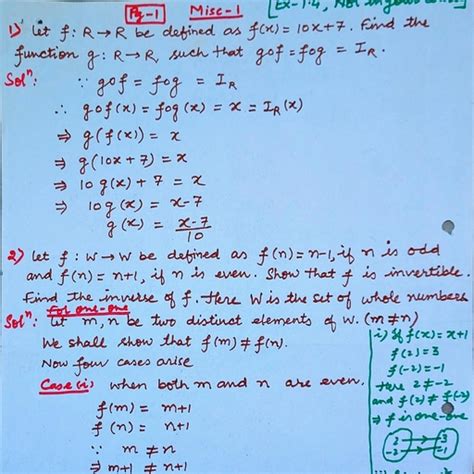 Pg-1 Misc-1 [Ex-1.4, Not in your
1) Let f: R→R be defined as f(x) = 10x+7. Find the
function g: R→R, such that gof = fog = I_R.
Solⁿ: ∵ gof = fog = I_R
∴ gof(x) = fog(x) = x = I_R(x)
⇒ g(f(x)) = x
⇒ g(10x+7) = x
⇒ 10g(x)+7 = x
⇒ 10g(x) = x-7
g(x) = (x-7)/10
2) Let f: W→W be defined as f(n)=n-1, if n is odd
and f(n)=n+1, if n is even. Show that f is invertible.
Find the inverse of f. Here W is the set of whole numbers
For one-one
Solⁿ: Let m,n be two distinct elements of W. (m≠n)
We shall show that f(m) ≠ f(n).
Now four cases arise
Case(i) when both m and n are even.
f(m) = m+1
f(n) = n+1
∵ m ≠ n
⇒ m+1 ≠ n+1
i) If f(x) = x+1
f(2) = 3
f(-2) = -1
Here 2 ≠ -2
and f(2) ≠ f(-2)
⇒ f is one-one
2 3
-2 -1